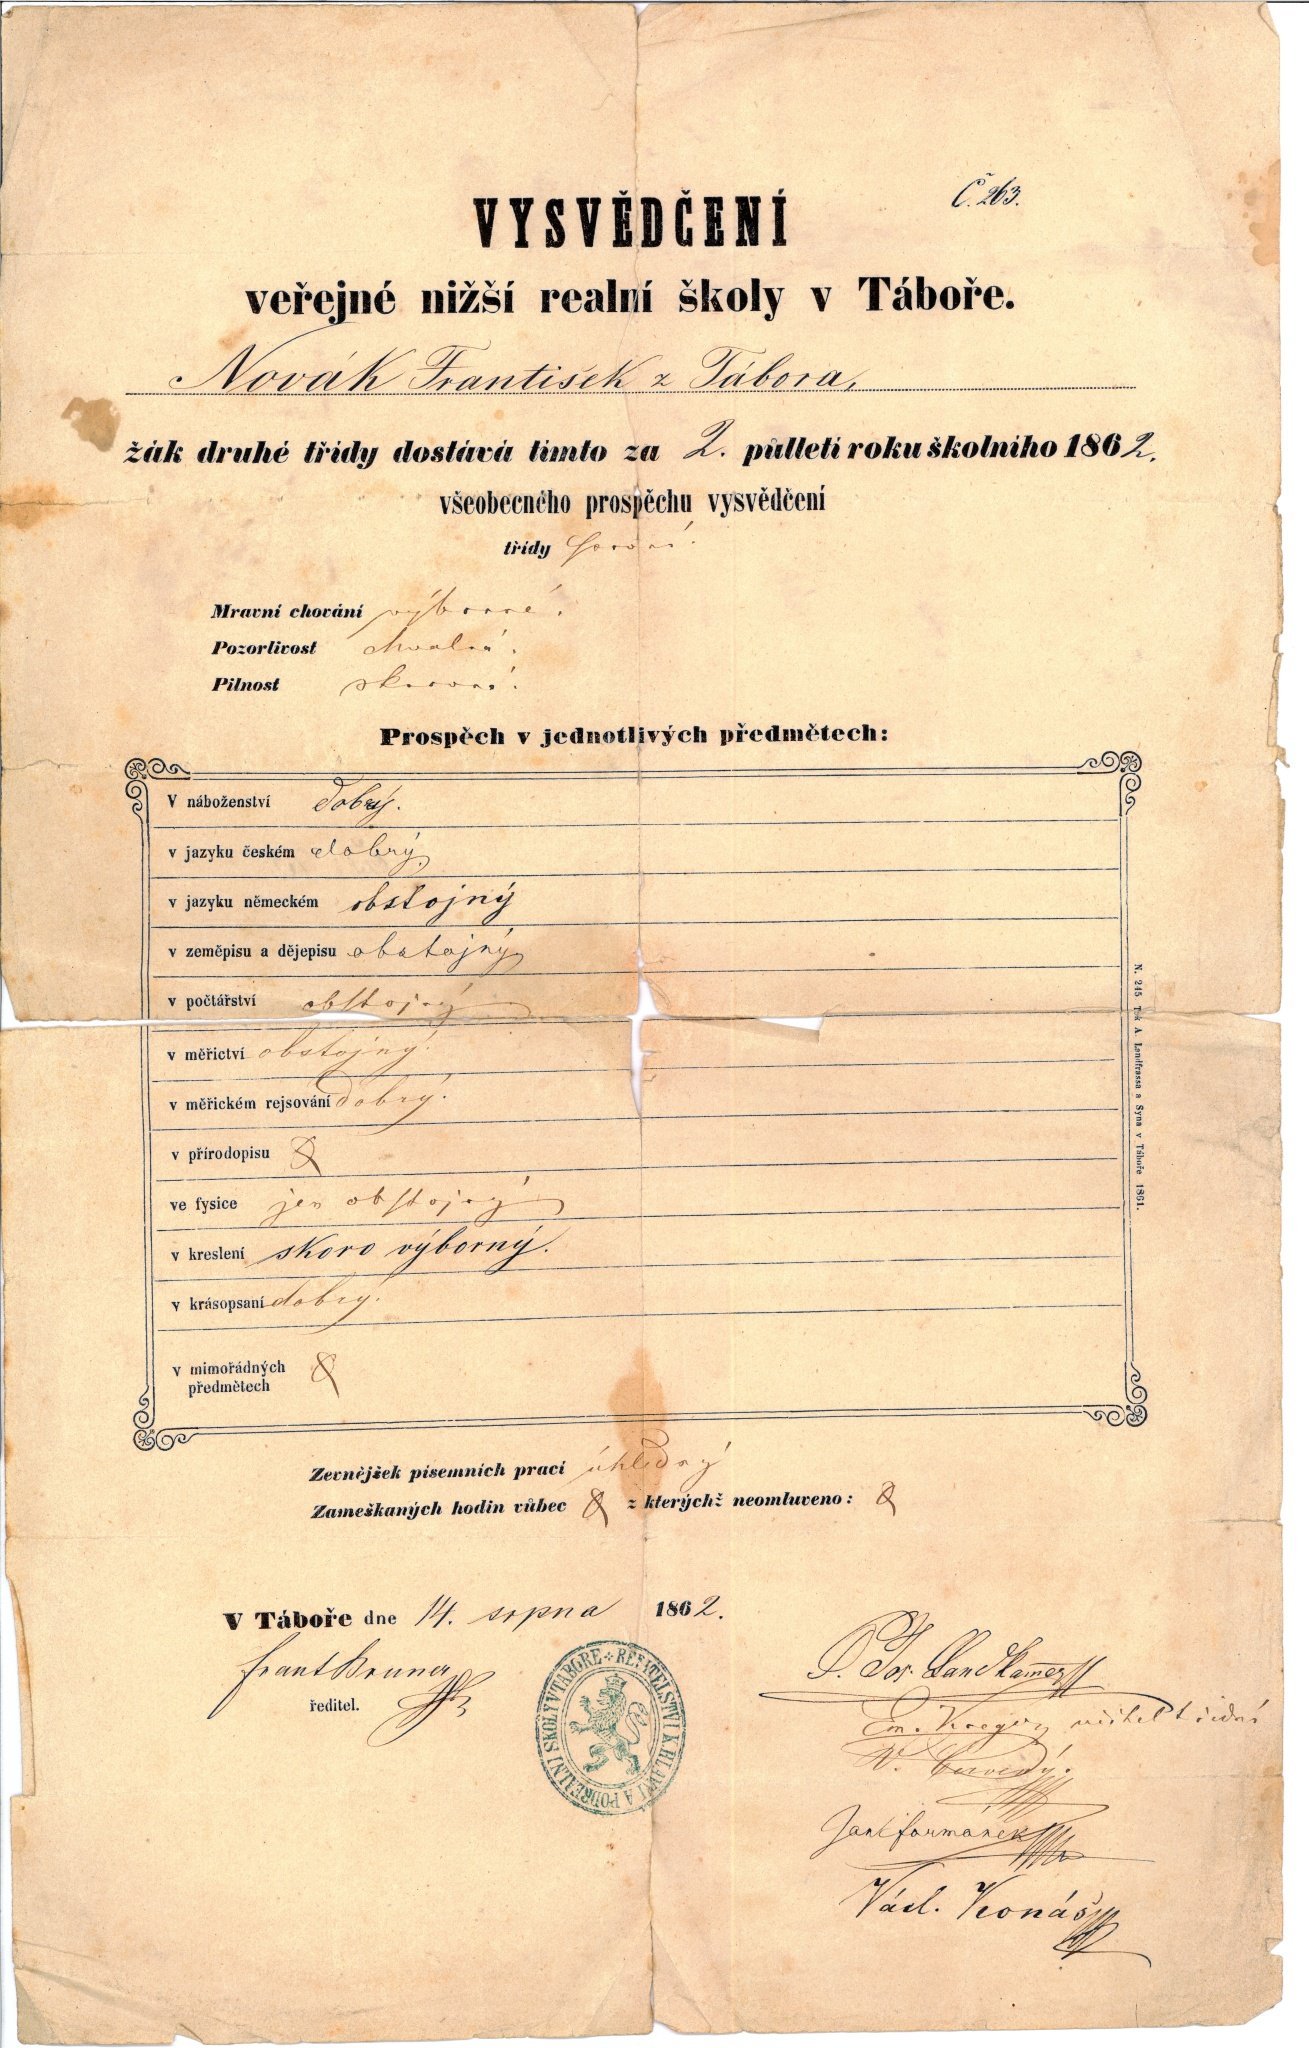 Č. 263.
VYSVĚDČENÍ
veřejné nižší realní školy v Táboře.
Novák František z Tábora,
žák druhé třídy dostává tímto za 2. půlletí roku školního 1862.
všeobecného prospěchu vysvědčení
třídy
Mravní chování výborné.
Pozorlivost chvalná.
Pilnost
Prospěch v jednotlivých předmětech:
V náboženství dobrý.
v jazyku českém dobrý
v jazyku německém obstojný
v zeměpisu a dějepisu obstojný
v počtářství obstojný
v měřictví obstojný.
v měřickém rejsování dobrý.
v přírodopisu
ve fysice jen obstojný
v kreslení skoro výborný.
v krásopsaní dobrý.
v mimořádných
předmětech
N. 245 Tisk A. Landfrassa a Syna v Táboře 1861.
Zevnějšek písemních prací úhledný
Zameškaných hodin vůbec z kterýchž neomluveno:
V Táboře dne 14. srpna 1862.
ředitel.
ŘEDITELSTVÍ K. HLAVNÍ A PODREALNÍ ŠKOLY V TABOŘE
P. Jos.
učitel třídní
Jan Formánek
Václ.